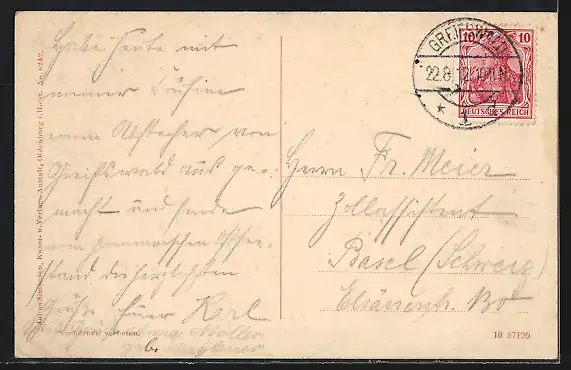 Habe heute mit
meiner Cousine
einen Abstecher von
Greifswald aus ge=
macht und sende
vom pommerschen Ostsee=
strand die herzlichsten
Grüße Euer Karl
Müller
geb.
Herrn Fr. Meier
Zollassistent
Basel (Schweiz)
Elsässerstr.
GREIFSWALD
22.8.12
10 10
DEUTSCHES REICH
Julius Simonsen, Kunst- u. Verlags-Anstalt, Oldenburg i. Holst. No.
Nachdruck verboten.
10 87126